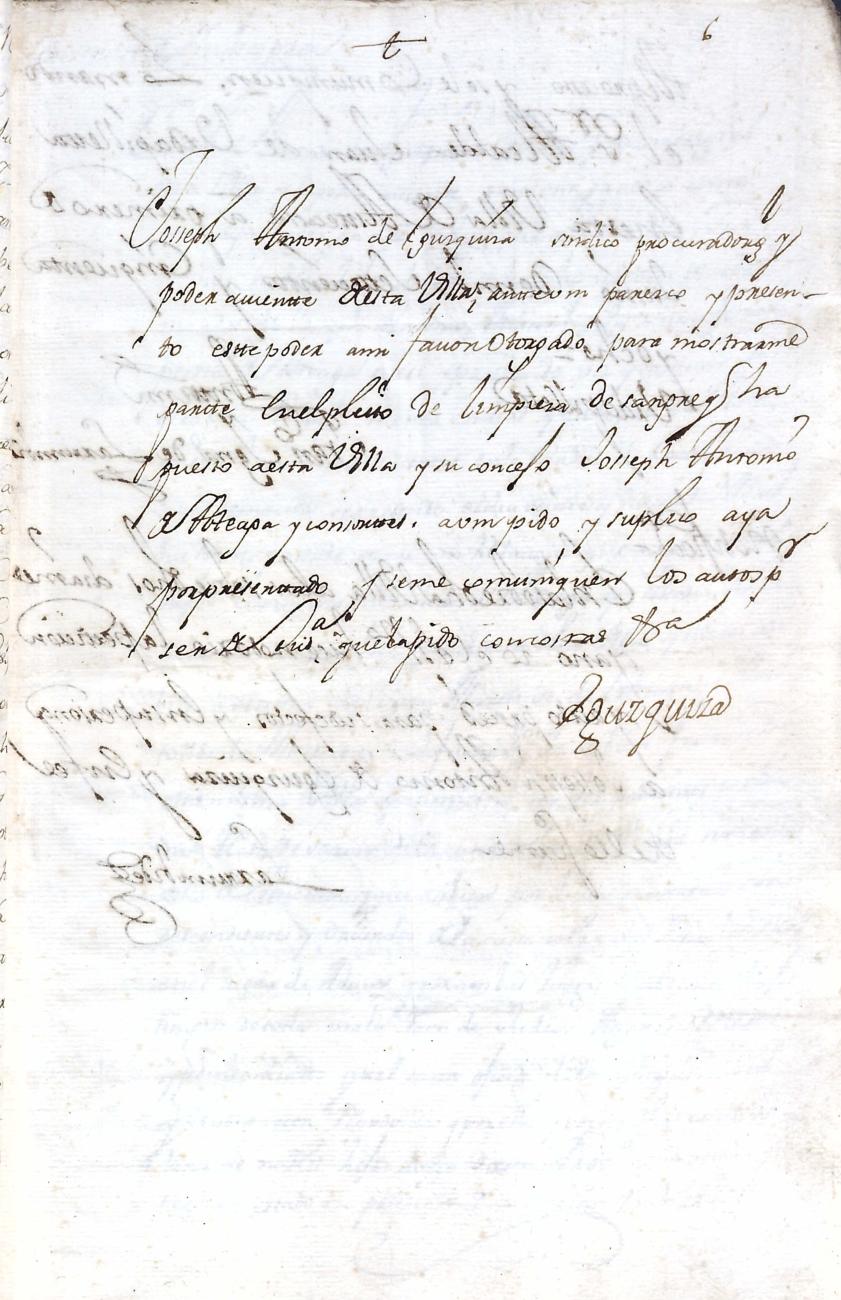 t
6
Josseph Antonio de Yzurquiza sindico procurador g y
poder aviente desta Villa, ante vm parezco y presen-
to este poder ami favor Otorgado para mostrarme
parte En el pleito de limpieza de sangre q ha
puesto a esta Villa y su concejo Josseph Antonio
de y consortes. avm pido y suplico aya
por presentado, y se me comuniquen los autos pr
ser de Jusª que la pido con costas &ª
Yzurquiza